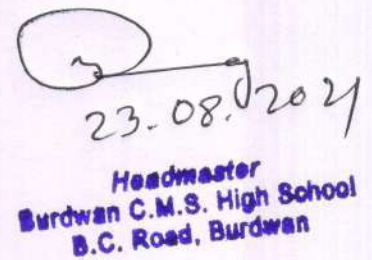 23.08.2021
Headmaster
Burdwan C.M.S. High School
B.C. Road, Burdwan